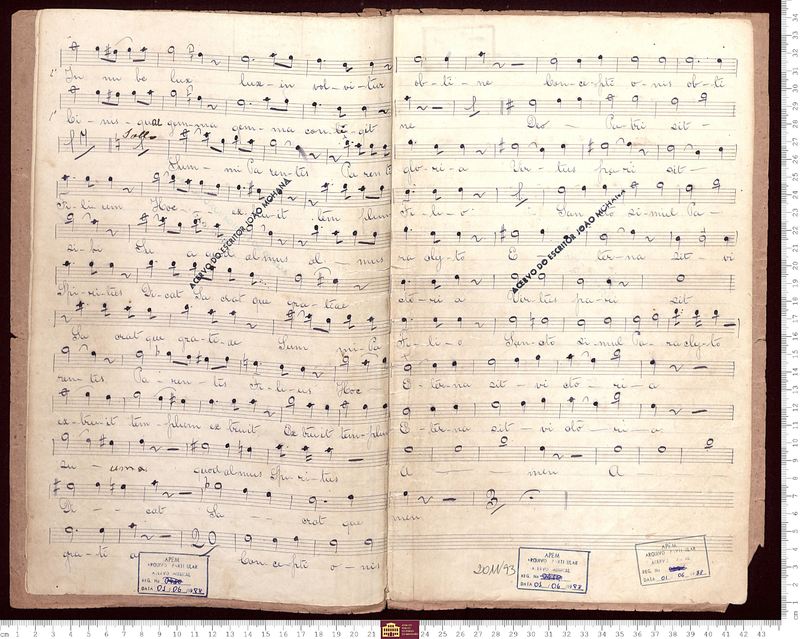 In nu be lux lux - in vol - vi - tur
Ci - nis - quae gem - ma gem - ma con - li - git
Solo
Sum - mi Pa ren - tis Pa rentis
Fi - li um Hoc ex tru - it tem plum
si - bi Su a quod al mus al - mus
Spi - ri - tus Di - cat Sa crat que gra - tiae
Sa crat que gra - ti - ae Sum mi - Pa
ren - tis Pa - ren - tis Fi - li - us Hoc
ex - tru - it tem - plum ex truit Ex truit tem - plum
su - um a quod almus Spi - ri - tus
Di - cat Sa - crat que
gra - ti ae 20 Con - ce - pti o - nis
ob - ti - ne Con - ce - pti o - nis ob - ti
ne Deo - Pa - tri sit -
glo - ri - a Vir - tus pa - ri sit -
Fi - li - o - San cto si - mul Pa -
ra cly - to E - ter - na sit - vi
cto - ri a Vir - tus pa - ri sit
Fi - li - o San - cto si - mul Pa - ra cly - to
E - ter - na sit - vi cto - ri - a
E - ter - na sit - vi cto - ri - a.
A - men A -
men
ACERVO DO ESCRITOR JOÃO MOHANA
ACERVO DO ESCRITOR JOÃO MOHANA
APEM
ARQUIVO PARTICULAR
ACERVO MUSICAL
REG. No
DATA 01 / 06 / 1988
2011/93
APEM
ARQUIVO PARTICULAR
ACERVO MUSICAL
REG. No
DATA 01 / 06 / 1988
APEM
ARQUIVO PARTICULAR
ACERVO MUSICAL
REG. No
DATA 01 / 06 / 1988